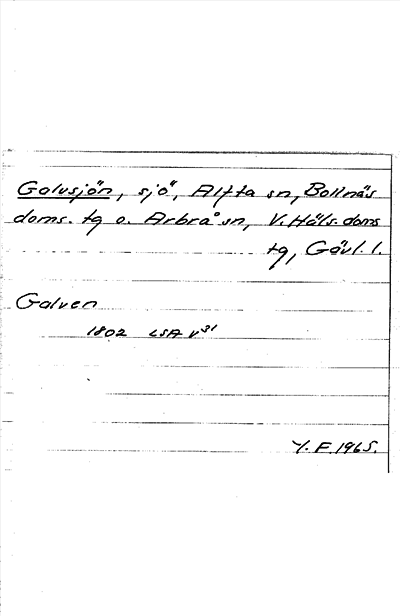 Galvsjön, sjö, Alfta sn, Bollnäs
doms. tg o. Arbrå sn, V. Häls. doms
tg, Gävl. l.
Galven
1802 LSA V31
Y. F. 1965.